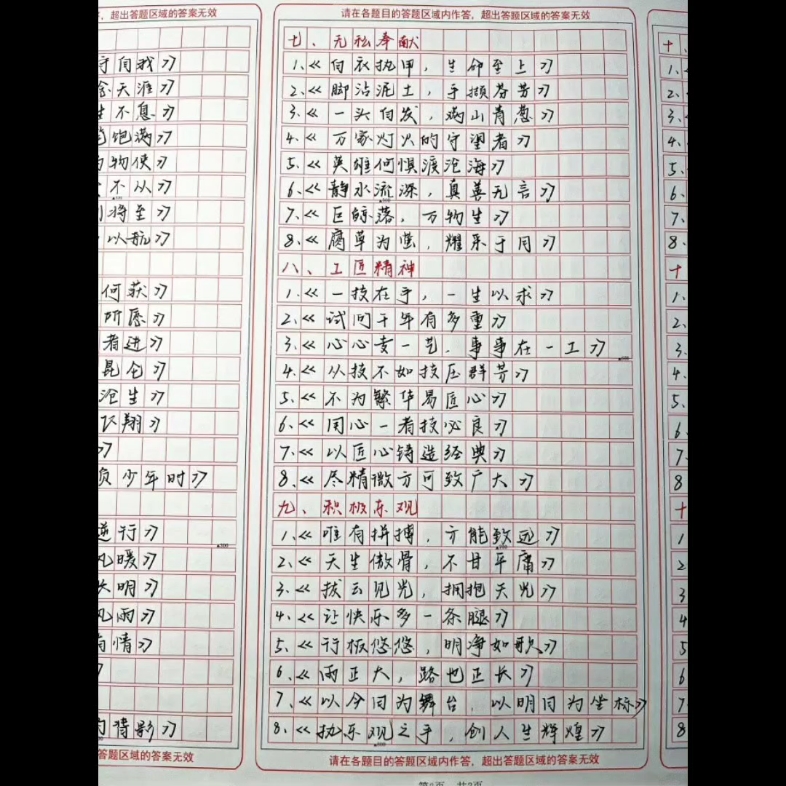 超出答题区域的答案无效
守自我》
天涯》
生不息》
饱满》
物使》
不从》
将至》
以航》
何获》
所愿》
者进》
昆仑》
沧生》
飞翔》
》
负少年时》
逆行》
风暖》
明》
风雨》
情》
》
影》
答题区域的答案无效
请在各题目的答题区域内作答，超出答题区域的答案无效
七、无私奉献
1.《白衣执甲，生命至上》
2.《脚沾泥土，手撷芬芳》
3.《一头白发，满山青葱》
4.《万家灯火的守望者》
5.《英雄何惧渡沧海》
6.《静水流深，真善无言》
7.《巨鲸落，万物生》
8.《腐草为萤，耀乐于同》
八、工匠精神
1.《一技在手，一生以求》
2.《试问千年有多重》
3.《心心专一艺，事事在一工》
4.《从技不如技压群芳》
5.《不为繁华易匠心》
6.《同心一者技必良》
7.《以匠心铸造经典》
8.《尽精微方可致广大》
九、积极乐观
1.《唯有拼搏，方能致远》
2.《天生傲骨，不甘平庸》
3.《拨云见光，拥抱天光》
4.《让快乐多一条腿》
5.《行板悠悠，明净如歌》
6.《雨正大，路也正长》
7.《以今日为舞台，以明日为坐标》
8.《执乐观之手，创人生辉煌》
请在各题目的答题区域内作答，超出答题区域的答案无效
请在各
十、
1.
2.
3.
4.
5.
6.
7.
8.
十
1.
2.
3.
4.
5.
6
7.
8
十
1
2
3
4
5
6
7
8